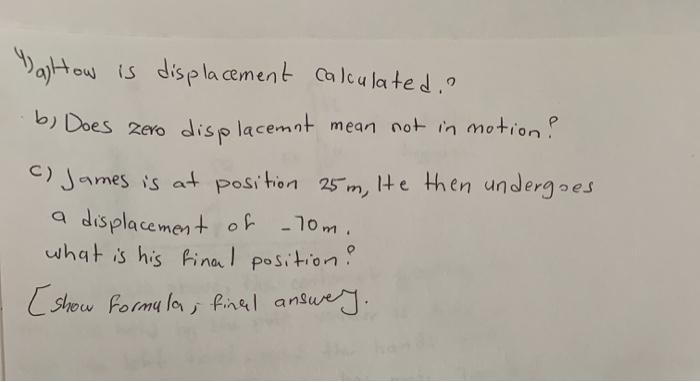 4) a) How is displacement calculated.?
b) Does zero displacemnt mean not in motion?
c) James is at position 25m, He then undergoes
a displacement of -70m.
what is his final position?
[show formula, final answer].